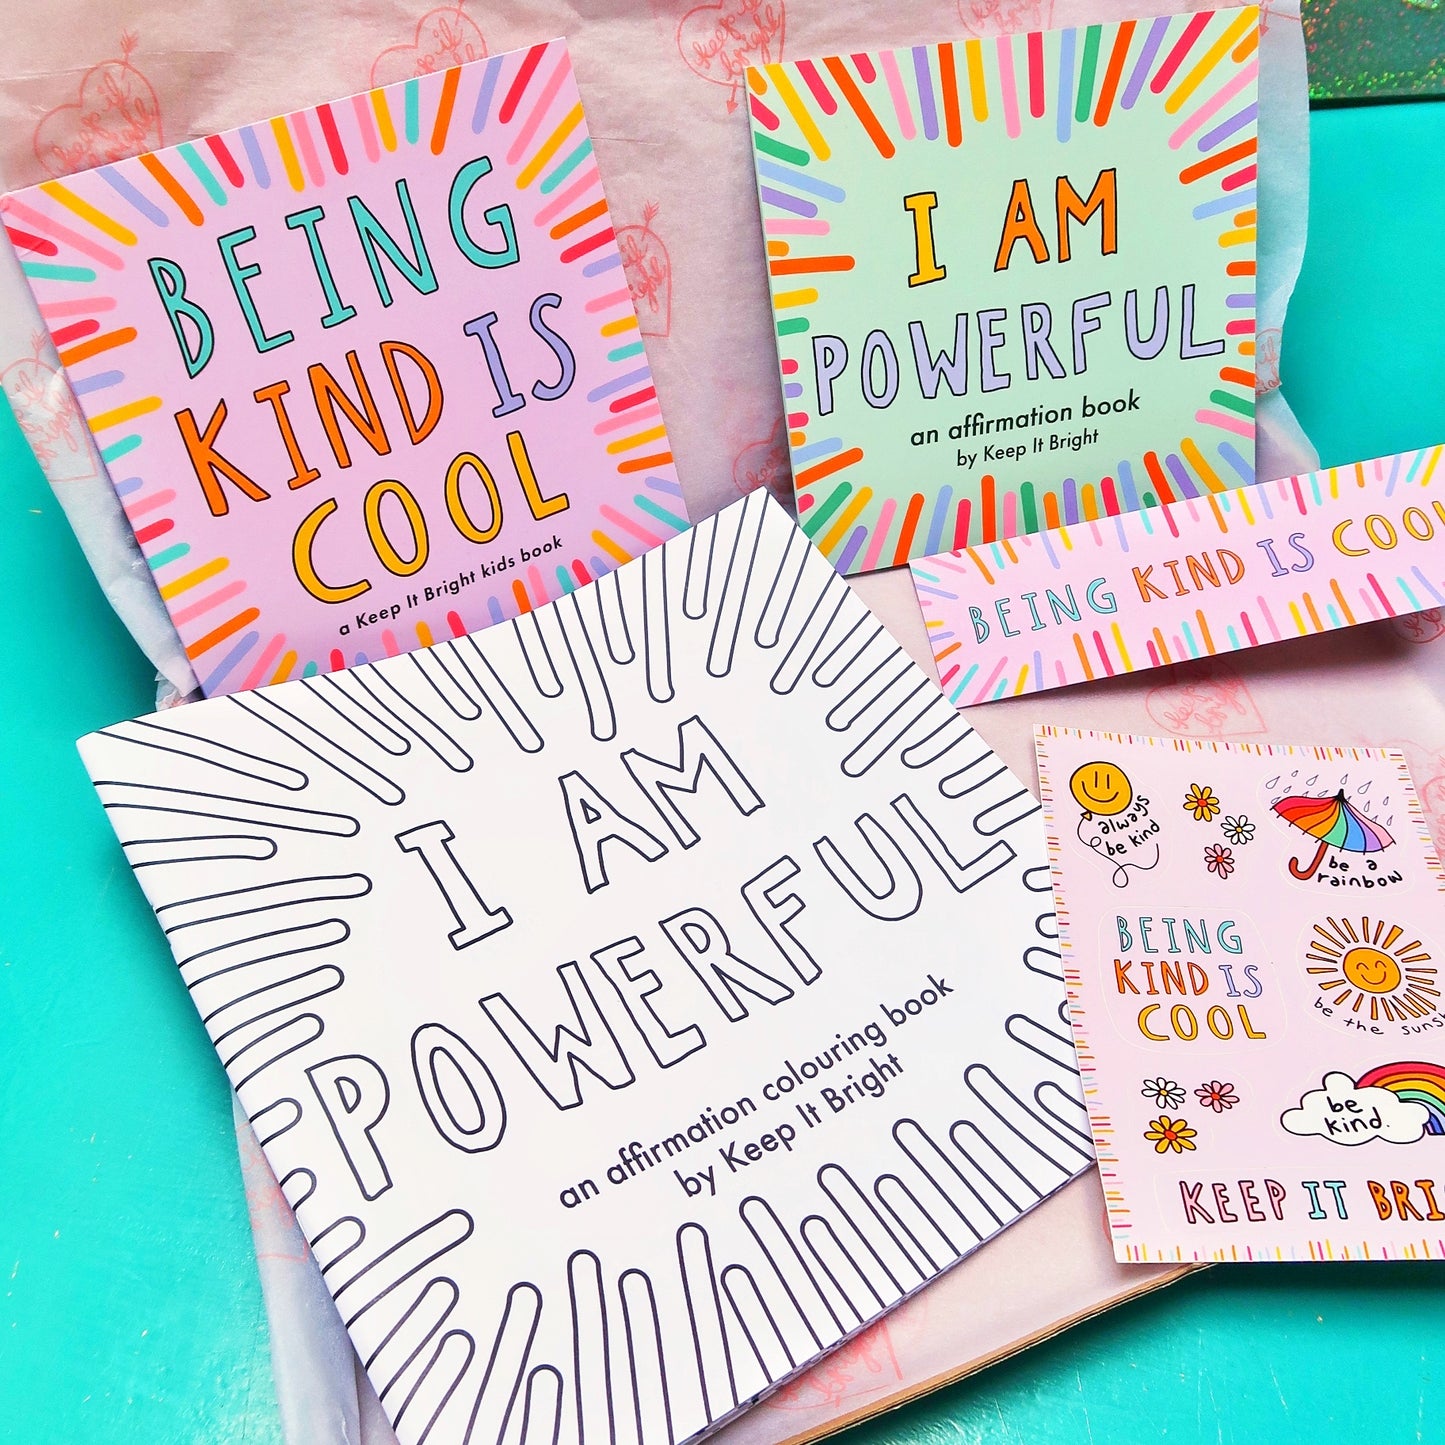 BEING
KIND IS
COOL
a Keep It Bright kids book
I AM
POWERFUL
an affirmation book
by Keep It Bright
BEING KIND IS COOL
I AM
POWERFUL
an affirmation colouring book
by Keep It Bright
always
be kind
be a
rainbow
BEING
KIND IS
COOL
be the
be
kind.
KEEP IT
keep it
bright